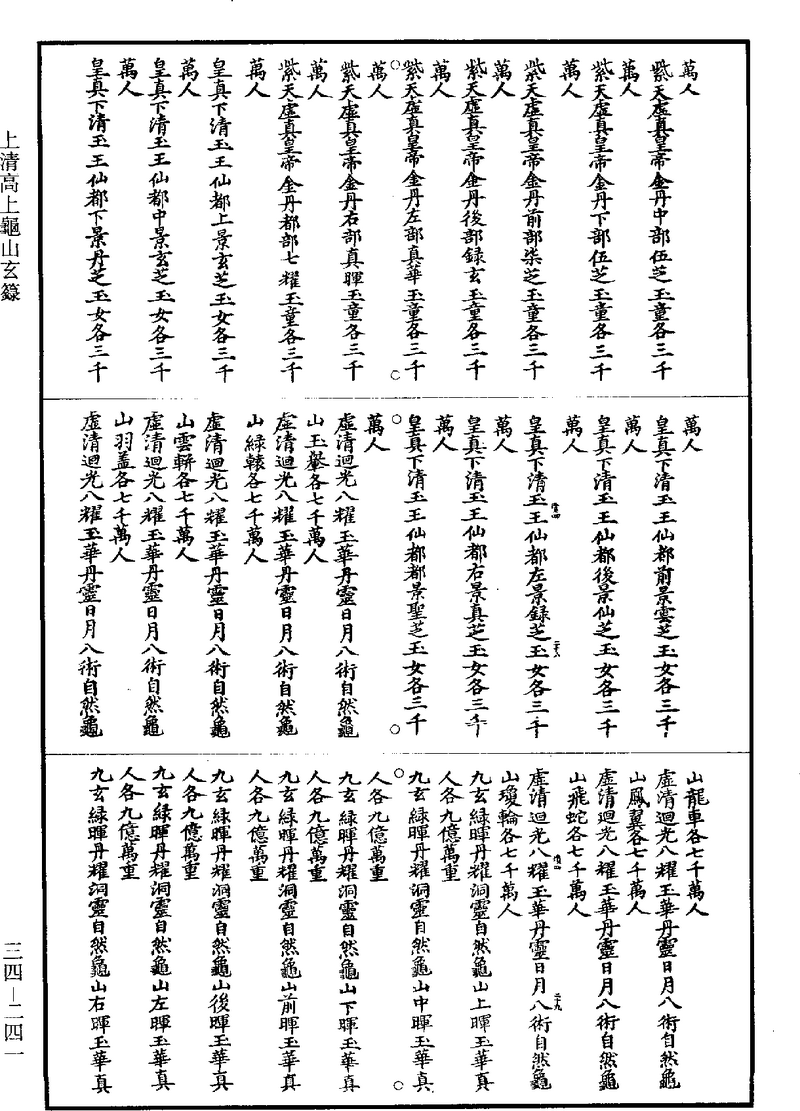 上清高上龜山玄籙
萬人
紫天虛真皇帝金丹中部伍芝玉童各三千
萬人
紫天虛真皇帝金丹下部伍芝玉童各三千
萬人
紫天虛真皇帝金丹前部柒芝玉童各三千
萬人
紫天虛真皇帝金丹後部録玄玉童各三千
萬人
紫天虛真皇帝金丹左部真華玉童各三千
萬人
紫天虛真皇帝金丹右部真暉玉童各三千
萬人
紫天虛真皇帝金丹都部七耀玉童各三千
萬人
皇真下清玉王仙都上景玄芝玉女各三千
萬人
皇真下清玉王仙都中景玄芝玉女各三千
萬人
皇真下清玉王仙都下景丹芝玉女各三千
萬人
皇真下清玉王仙都前景雲芝玉女各三千
萬人
皇真下清玉王仙都後景仙芝玉女各三千
萬人
皇真下清玉王仙都左景録芝玉女各三千
萬人
皇真下清玉王仙都右景真芝玉女各三千
萬人
皇真下清玉王仙都都景聖芝玉女各三千
萬人
虛清迴光八耀玉華丹靈日月八術自然龜
山玉轝各七千萬人
虛清迴光八耀玉華丹靈日月八術自然龜
山緑轅各七千萬人
虛清迴光八耀玉華丹靈日月八術自然龜
山雲輧各七千萬人
虛清迴光八耀玉華丹靈日月八術自然龜
山羽盖各七千萬人
虛清迴光八耀玉華丹靈日月八術自然龜
山龍車各七千萬人
虛清迴光八耀玉華丹靈日月八術自然龜
山鳳翼各七千萬人
虛清迴光八耀玉華丹靈日月八術自然龜
山飛蛇各七千萬人
虛清迴光八耀玉華丹靈日月八術自然龜
山瓊輪各七千萬人
九玄緑暉丹耀洞靈自然龜山上暉玉華真
人各九億萬重
九玄緑暉丹耀洞靈自然龜山中暉玉華真
人各九億萬重
九玄緑暉丹耀洞靈自然龜山下暉玉華真
人各九億萬重
九玄緑暉丹耀洞靈自然龜山前暉玉華真
人各九億萬重
九玄緑暉丹耀洞靈自然龜山後暉玉華真
人各九億萬重
九玄緑暉丹耀洞靈自然龜山左暉玉華真
人各九億萬重
九玄緑暉丹耀洞靈自然龜山右暉玉華真
三四—二四一